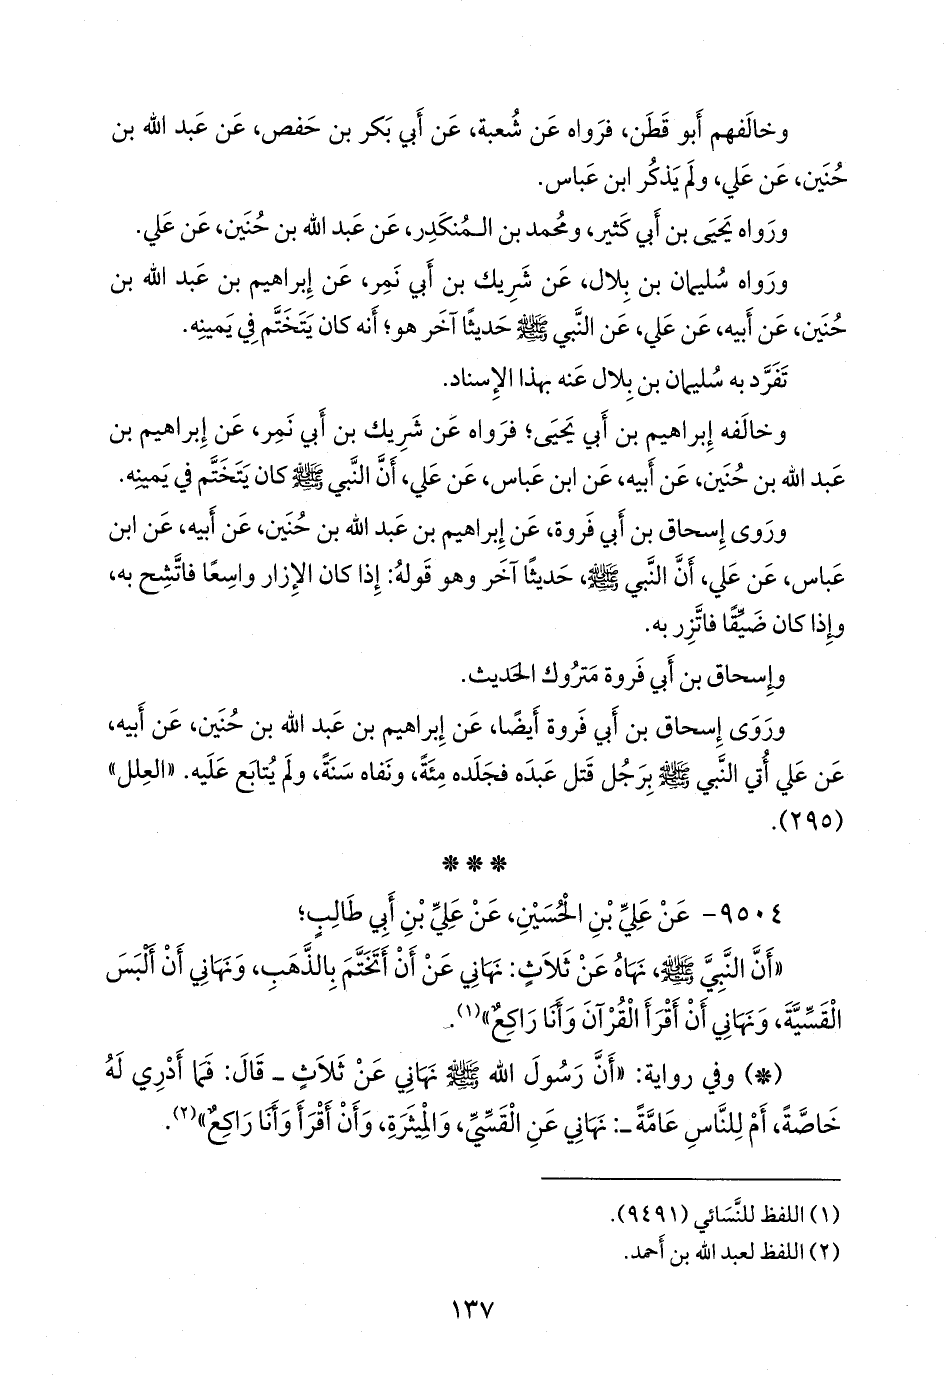 وخالَفهم أَبو قَطَن، فرَواه عَن شُعبة، عَن أَبي بَكر بن حَفص، عَن عَبد الله بن
حُنَين، عَن عَلي، ولَم يَذكُر ابن عَباس.
ورَواه يَحيَى بن أَبي كَثير، ومُحمد بن الـمُنكَدِر، عَن عَبد الله بن حُنَين، عَن عَلي.
ورَواه سُليمان بن بِلال، عَن شَرِيك بن أَبي نَمِر، عَن إِبراهيم بن عَبد الله بن
حُنَين، عَن أَبيه، عَن عَلي، عَن النَّبي ﷺ حَديثًا آخَر هو؛ أَنه كان يَتَختَّم فِي يَمينِه.
تَفَرَّد به سُليمان بن بِلال عَنه بهذا الإِسناد.
وخالَفه إِبراهيم بن أَبي يَحيَى؛ فرَواه عَن شَرِيك بن أَبي نَمِر، عَن إِبراهيم بن
عَبد الله بن حُنَين، عَن أَبيه، عَن ابن عَباس، عَن عَلي، أَنَّ النَّبي ﷺ كان يَتَختَّم في يَمينِه.
ورَوى إِسحاق بن أَبي فَروة، عَن إِبراهيم بن عَبد الله بن حُنَين، عَن أَبيه، عَن ابن
عَباس، عَن عَلي، أَنَّ النَّبي ﷺ، حَديثًا آخَر وهو قَولهُ: إِذا كان الإِزار واسِعًا فاتَّشِح به،
وإِذا كان ضَيِّقًا فاتَّزِر به.
وإِسحاق بن أَبي فَروة مَترُوك الحَديث.
ورَوَى إِسحاق بن أَبي فَروة أَيضًا، عَن إِبراهيم بن عَبد الله بن حُنَين، عَن أَبيه،
عَن عَلي أُتي النَّبي ﷺ بِرَجُل قَتل عَبدَه فجَلَده مِئَةً، ونَفاه سَنَةً، ولَم يُتابَع عَلَيه. «العِلل»
(٢٩٥).
* * *
٩٥٠٤- عَنْ عَلِيِّ بْنِ الْحُسَيْنِ، عَنْ عَلِيِّ بْنِ أَبِي طَالِبٍ؛
«أَنَّ النَّبِيَّ ﷺ، نَهَاهُ عَنْ ثَلَاثٍ: نَهَانِي عَنْ أَنْ أَتَخَتَّمَ بِالذَّهَبِ، وَنَهَانِي أَنْ أَلْبَسَ
الْقَسِّيَّةَ، وَنَهَانِي أَنْ أَقْرَأَ الْقُرْآنَ وَأَنَا رَاكِعٌ»(١).
(*) وفي رواية: «أَنَّ رَسُولَ الله ﷺ نَهَانِي عَنْ ثَلَاثٍ ـ قَالَ: فَمَا أَدْرِي لَهُ
خَاصَّةً، أَمْ لِلنَّاسِ عَامَّةً ـ: نَهَانِي عَنِ الْقَسِّيِّ، وَالْمِيثَرَةِ، وَأَنْ أَقْرَأَ وَأَنَا رَاكِعٌ»(٢).
(١) اللفظ للنَّسَائي (٩٤٩١).
(٢) اللفظ لعبد الله بن أَحمد.
١٣٧